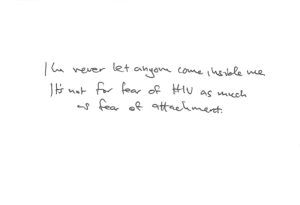 I've never let anyone come inside me.
It's not for fear of HIV as much
as fear of attachment.